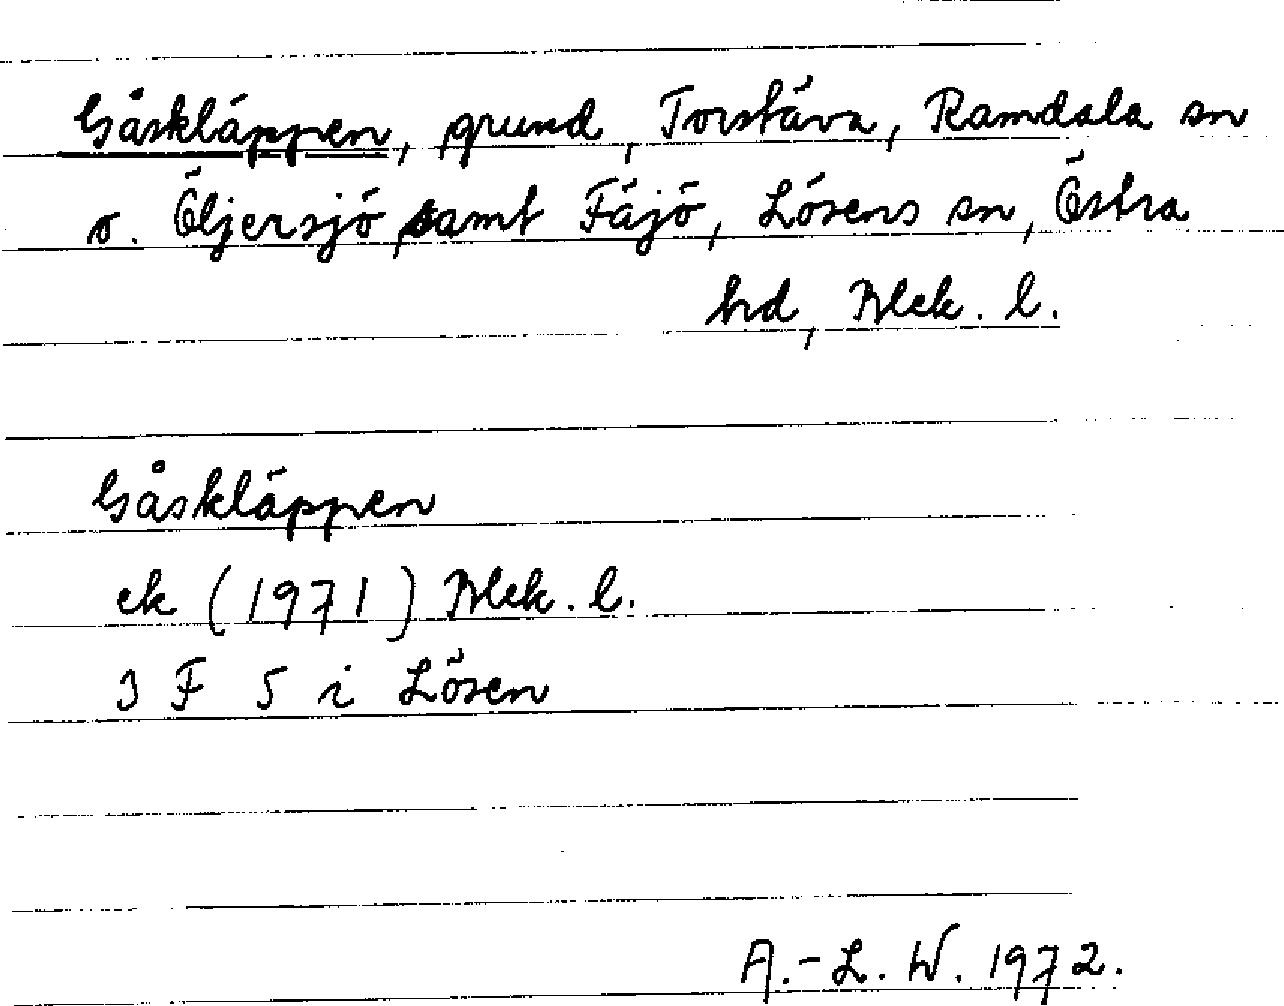 Gåskläppen, grund, Torstäva, Ramdala sn
o. Öljersjö, samt Fäjö, Lösens sn, Östra
hd, Blek. l.
Gåskläppen
ek (1971) Blek. l.
3 F 5 i Lösen
A.-L. W. 1972.